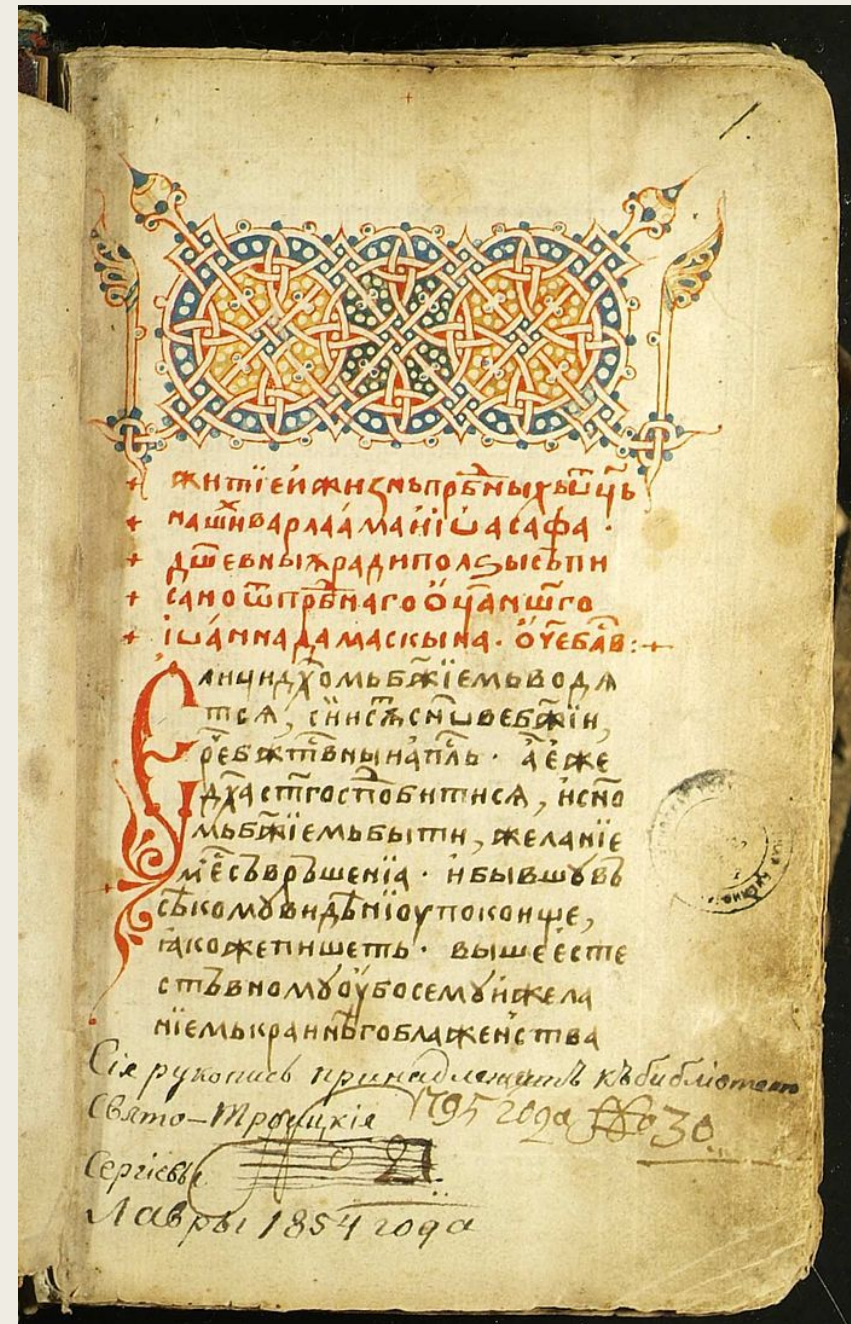 1.
+ житїе и жизнь прп҃бныхъ ѿц҃ъ
+ нашиⷯ варлаама и іѡасафа ·
+ дш҃евныѧ ради ползы съпи
+ сано ѿ прп҃бнаго ѻц҃а нш҃го
+ іѡанна дамаскына · ѻч҃е бл҃в :+
Елици дх҃омь бж҃їемь водѧ
тсѧ, сїи сѫⷮ сн҃ове бж҃їи,
реⷱ бжⷭ҇твныи ап҃лъ · а еже
дх҃а ст҃го сподобитисѧ, и сн҃о
мь бж҃їемь быти, желанїе
мь есⷮ съвръшенїа · и бывшꙋ въ
сѣкомꙋ видѣнїоу покоище,
ꙗкоже пишеть · выше есте
стъвномꙋ оубо семꙋ и жела
нїемь краинѣго блаженства
Сія рукопись принадлежитъ къ библіотекѣ
Свято-Троицкія 1795 года № 30
Сергіевы № 21
Лавры 1854 года